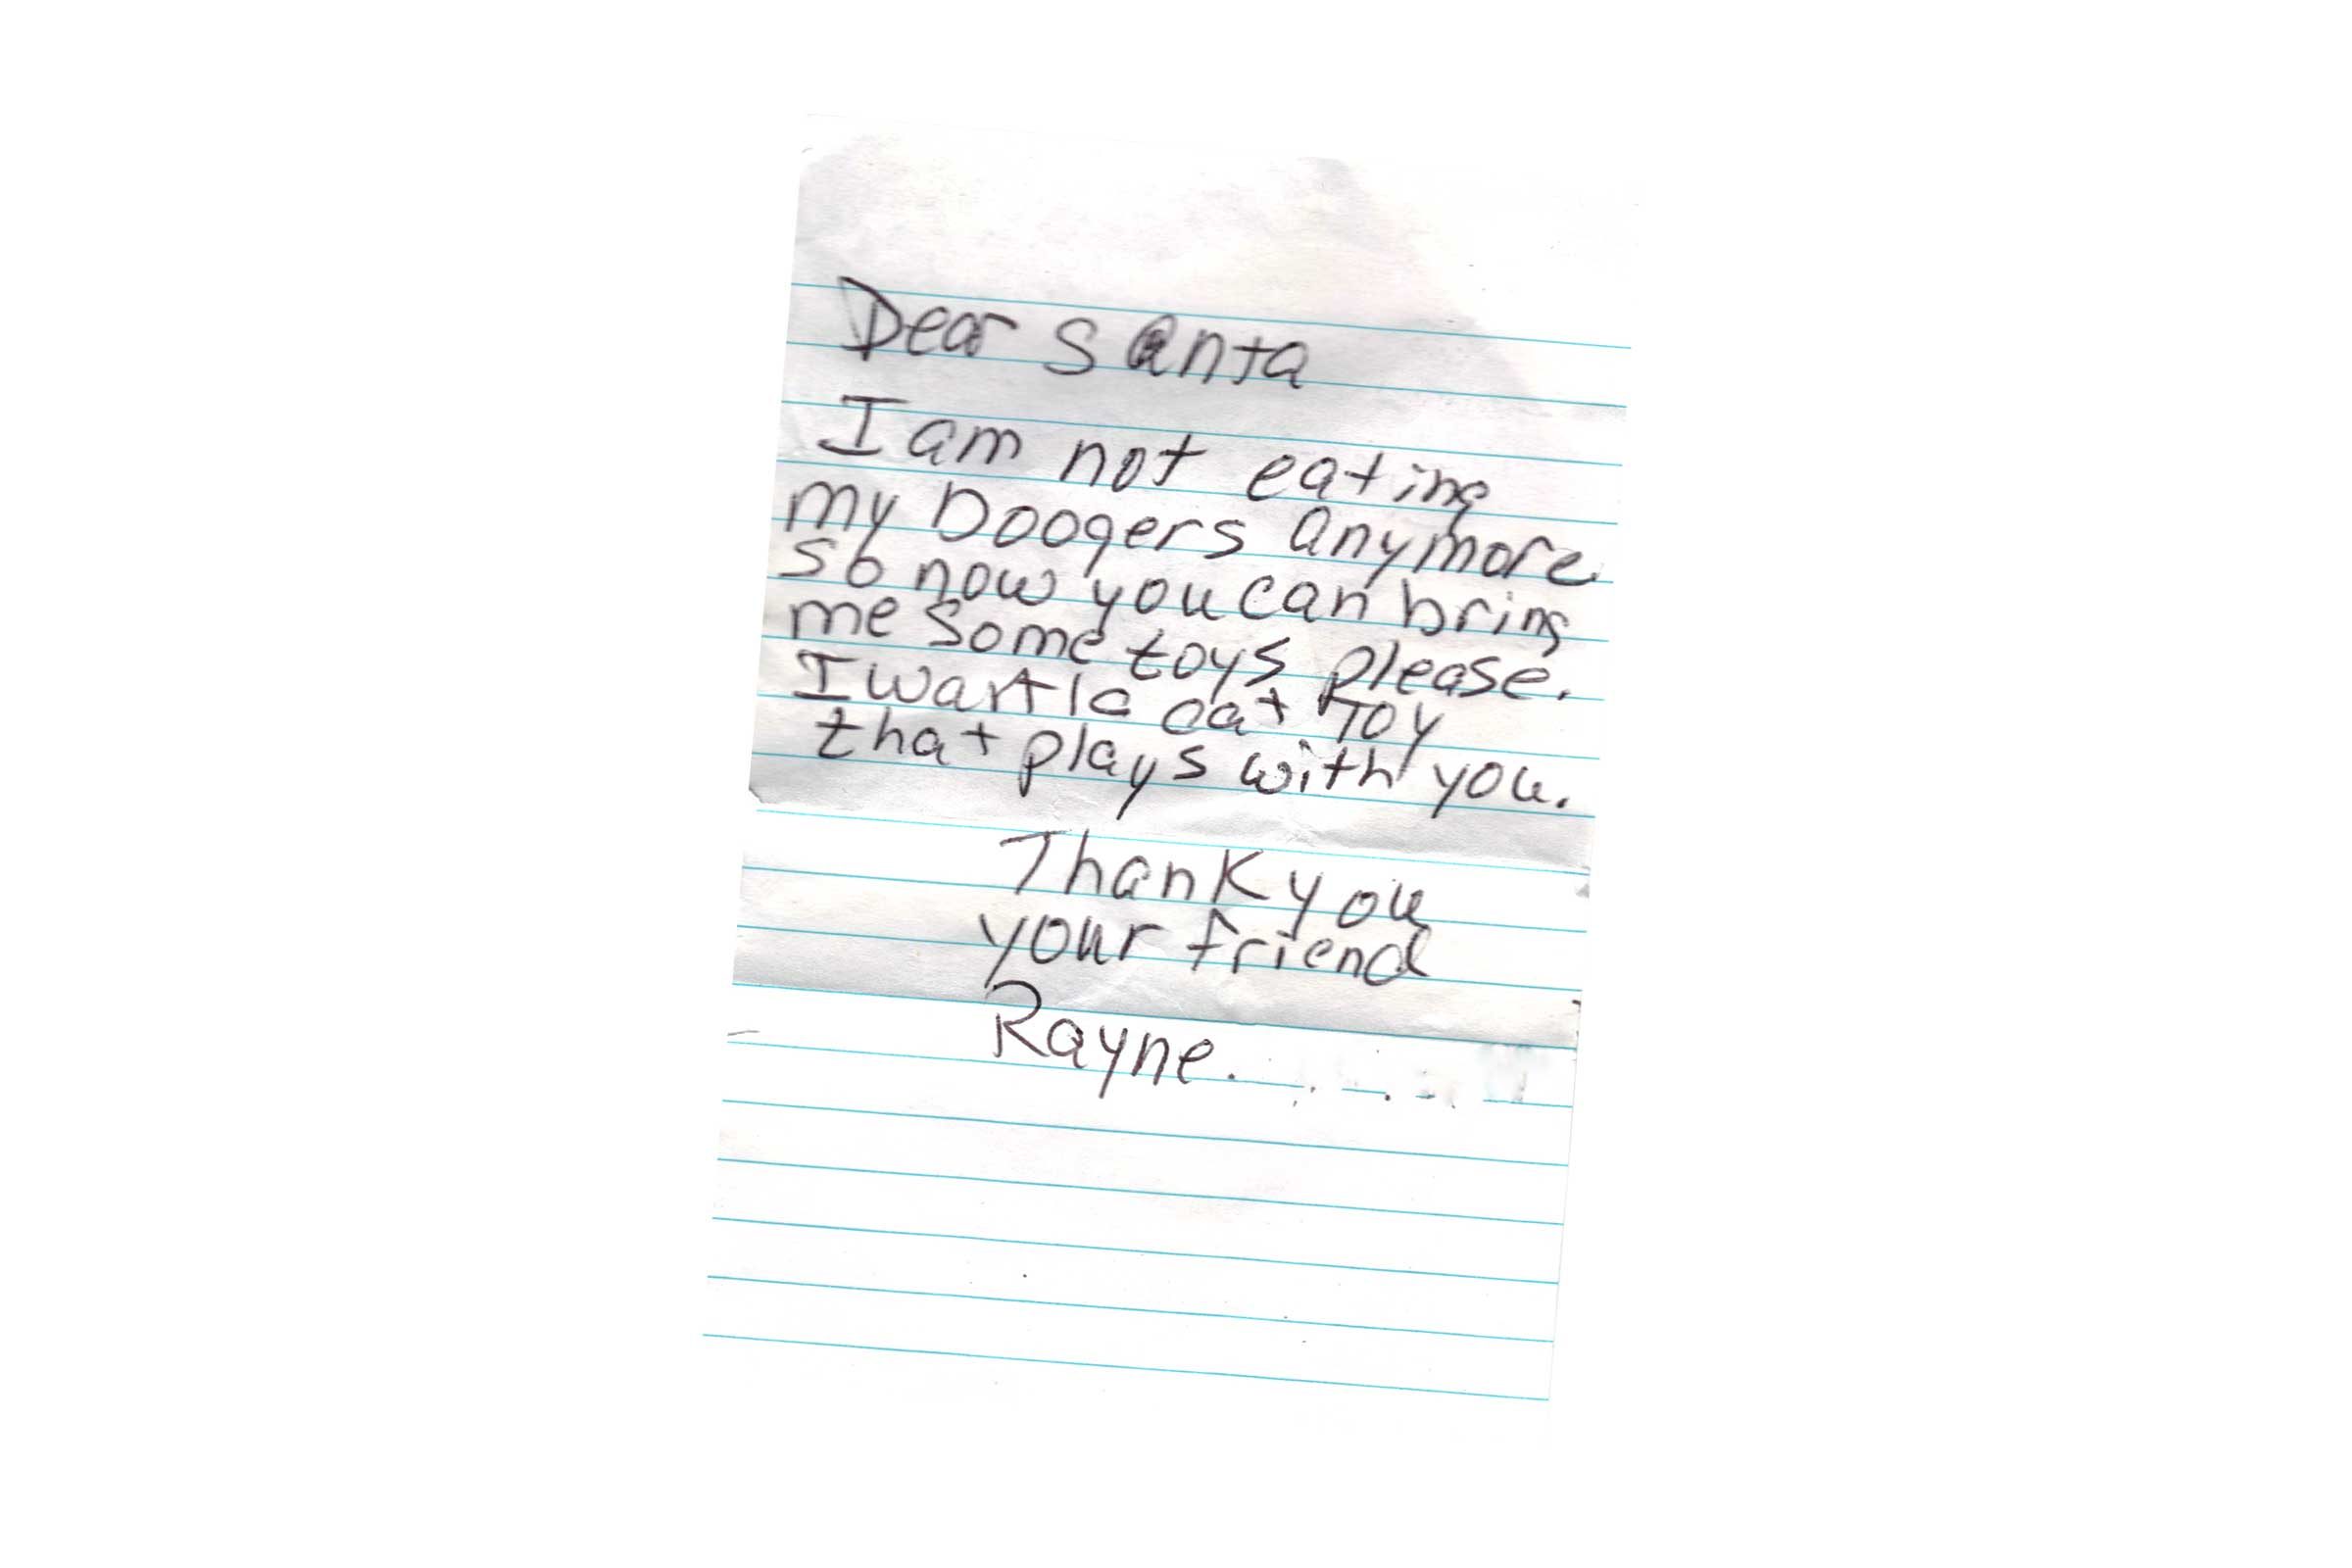 Dear Santa
I am not eating
my boogers anymore
so now you can bring
me some toys please.
I want a cat Toy
that plays with you.
Thank you
your friend
Rayne.